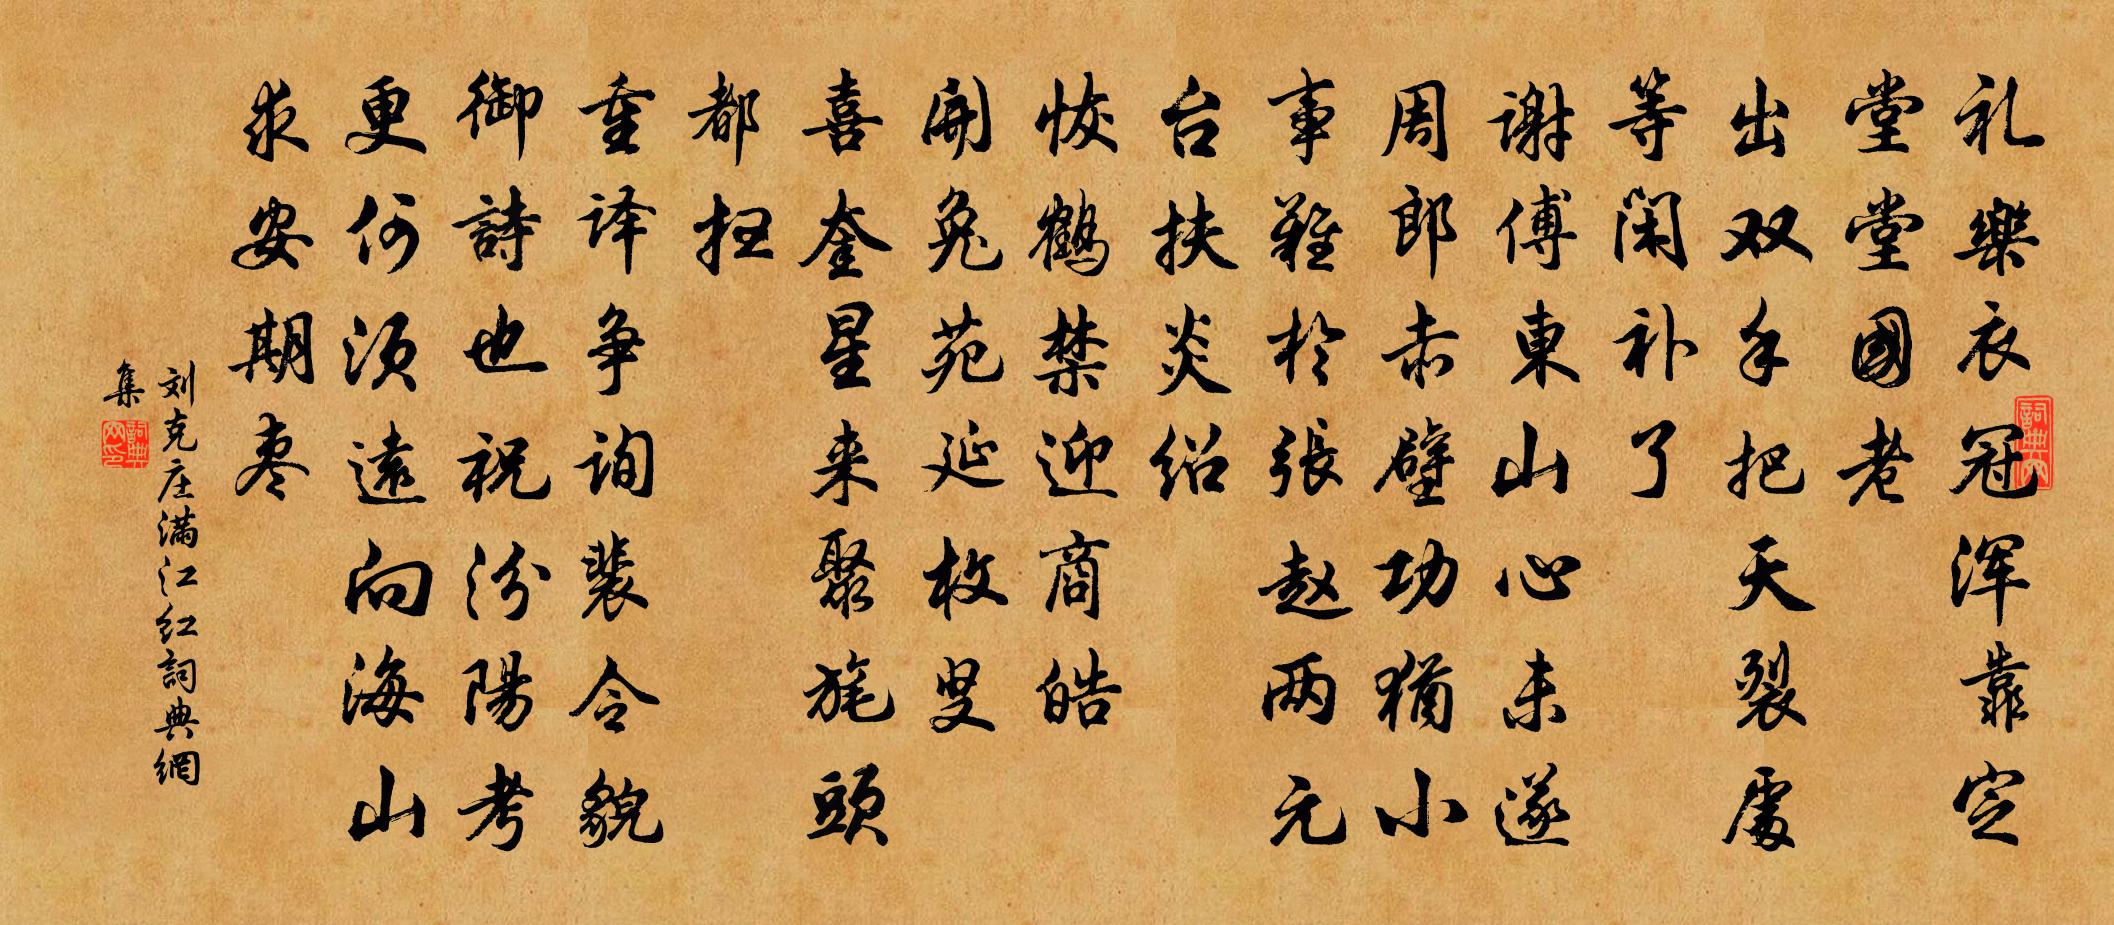 礼樂衣冠浑靠定
堂堂國老
出双手把天裂處
等闲补了
謝傅東山心未遂
周郎赤壁功猶小
事難於張赵两元
台扶炎绍
恢鶴禁迎商皓
開兔苑延枚叟
喜奎星来聚旄頭
都扫
重译争询裴令貌
御詩也祝汾陽考
更何须遠向海山
求安期枣
刘克庄满江红詞典網
集
詞典
詞典网印